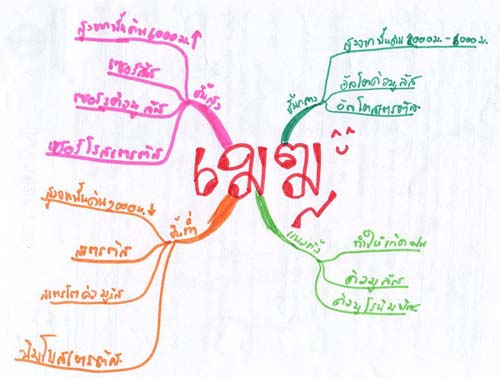 เมฆ
ชั้นสูง
สูงจากพื้นดิน 6000 ม. ↑
เซอร์รัส
เซอร์โรคิวมูลัส
เซอร์โรสเตรตัส
ชั้นกลาง
สูงจากพื้นดิน 2000 ม. - 6000 ม.
อัลโตคิวมูลัส
อัลโตสเตรตัส
ชั้นต่ำ
สูงจากพื้นดิน 2000 ม. ↓
สเตรตัส
สเตรโตคิวมูลัส
นิมโบสเตรตัส
แนวตั้ง
ทำให้เกิดฝน
คิวมูลัส
คิวมูโลนิมบัส